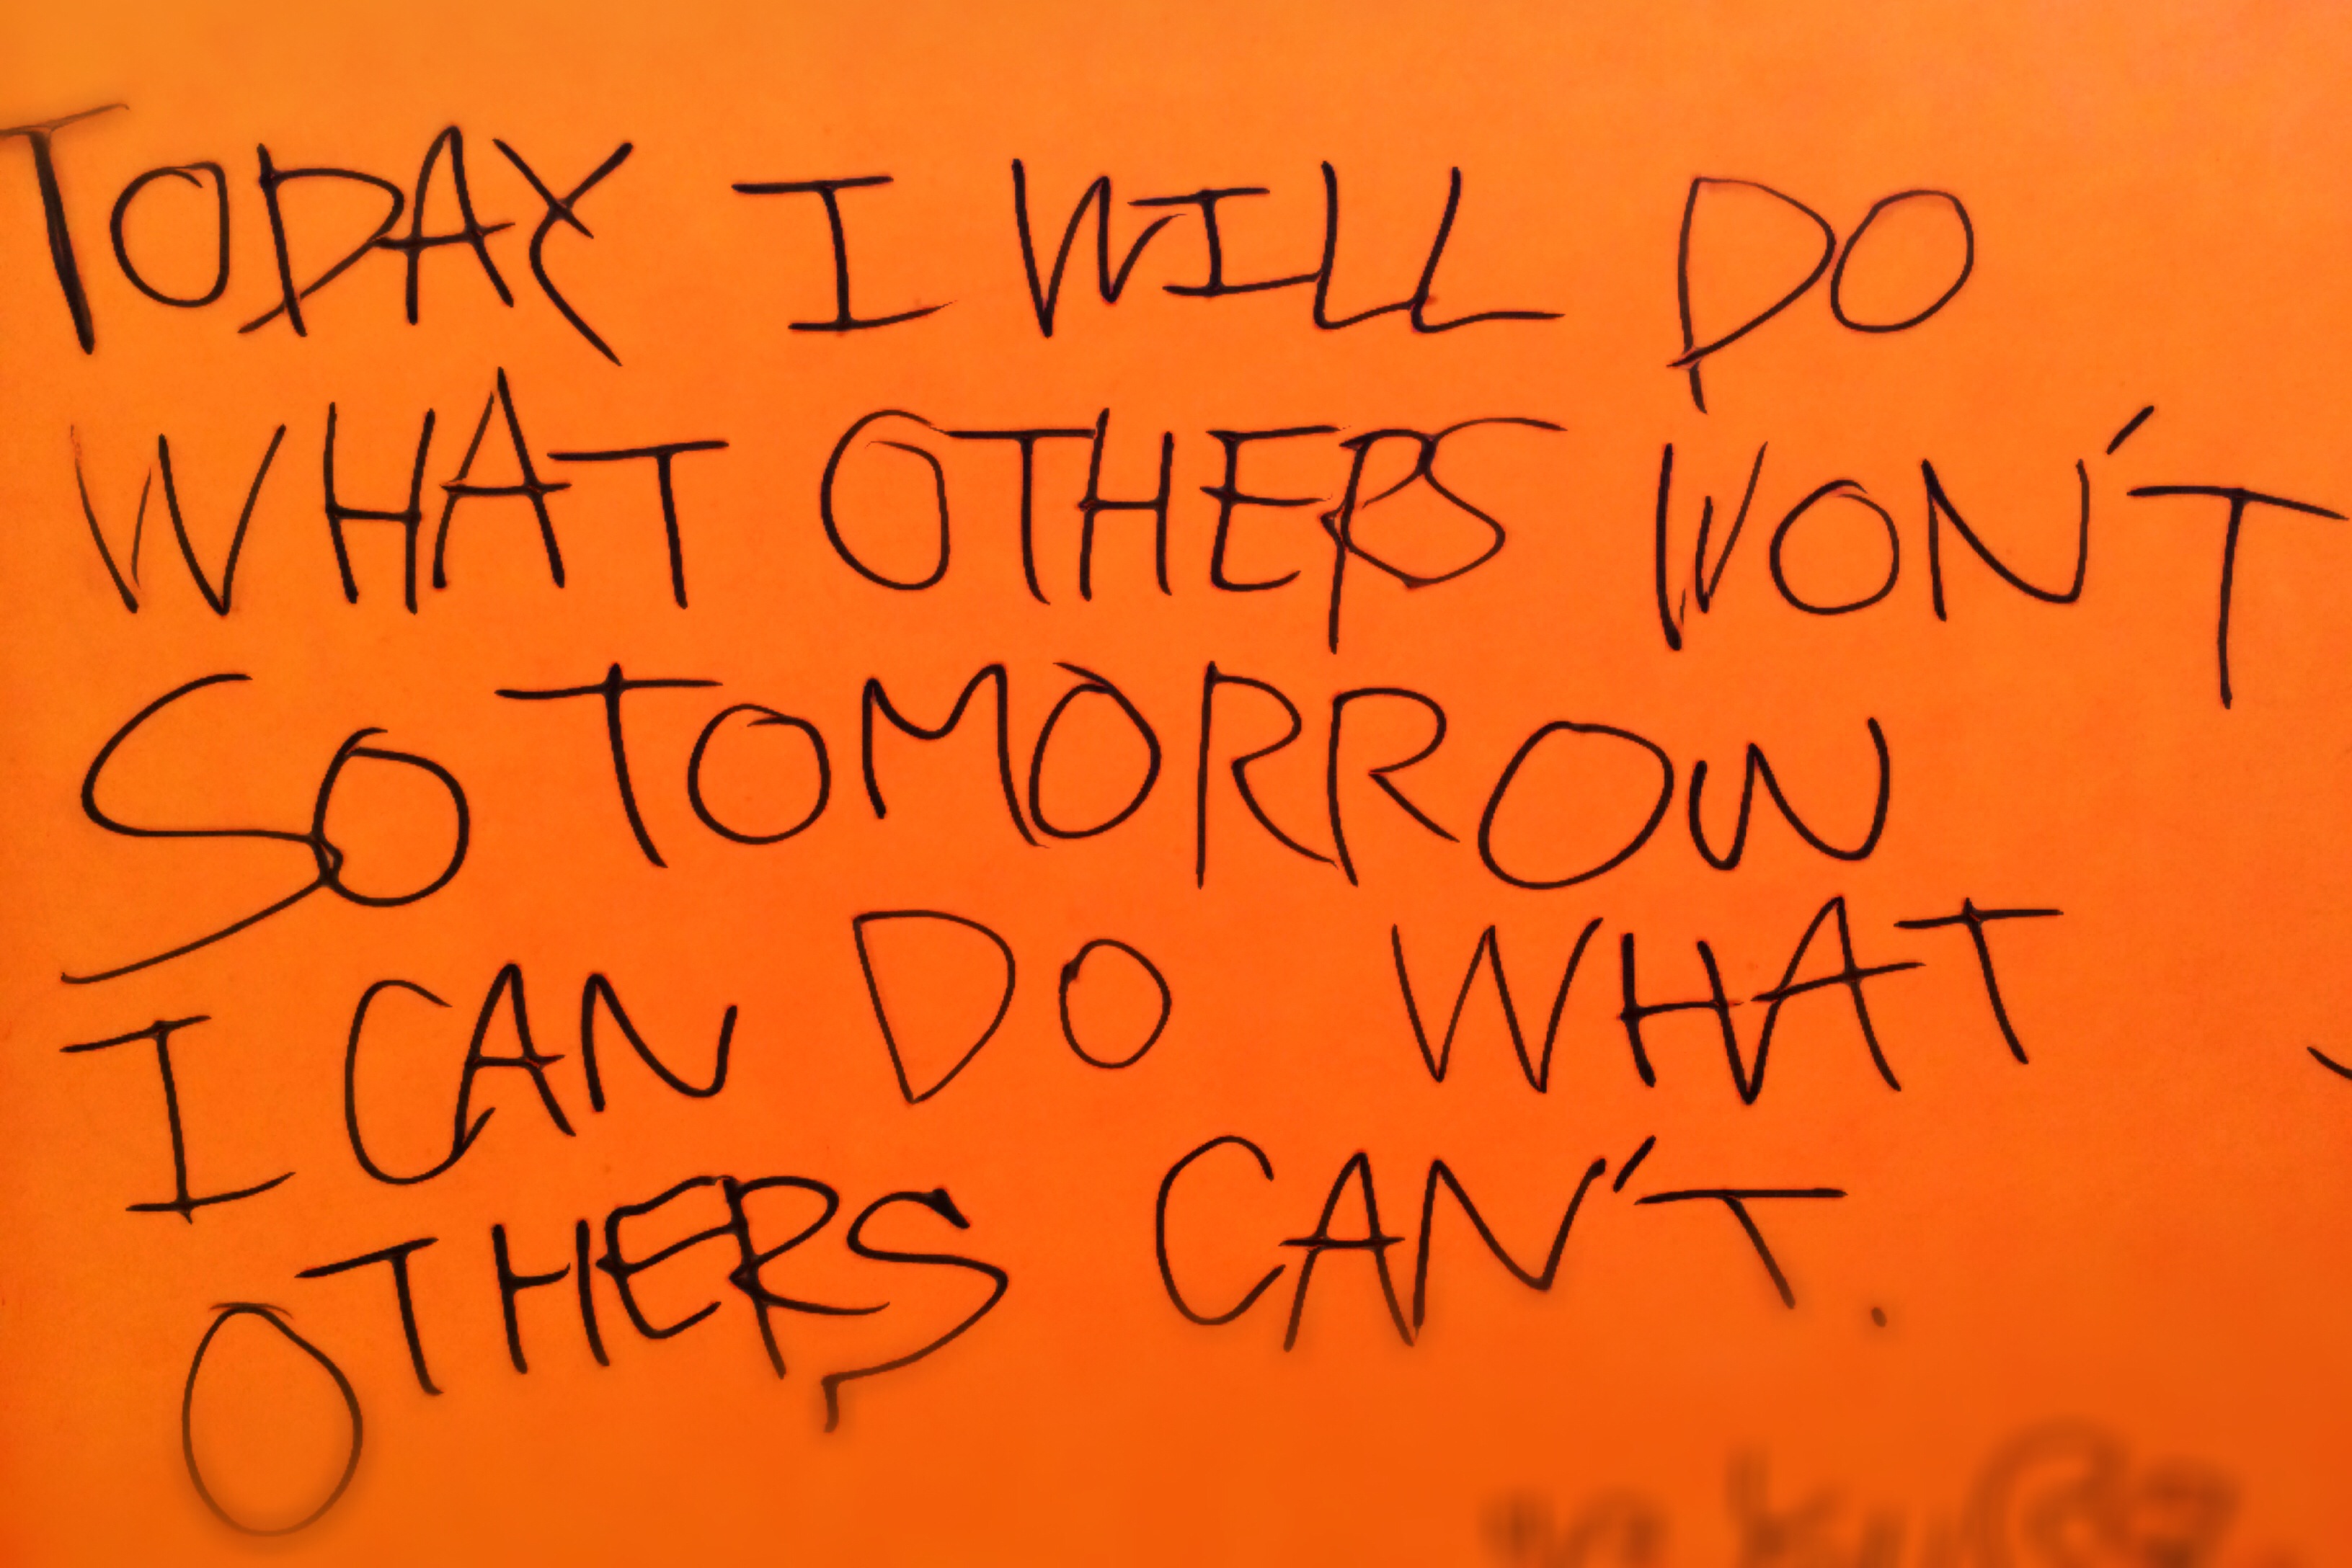 TODAY I WILL DO
WHAT OTHERS WON'T
SO TOMORROW
I CAN DO WHAT
OTHERS CAN'T.